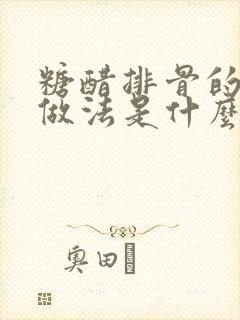 糖醋排骨的
做法是什麼
奥田